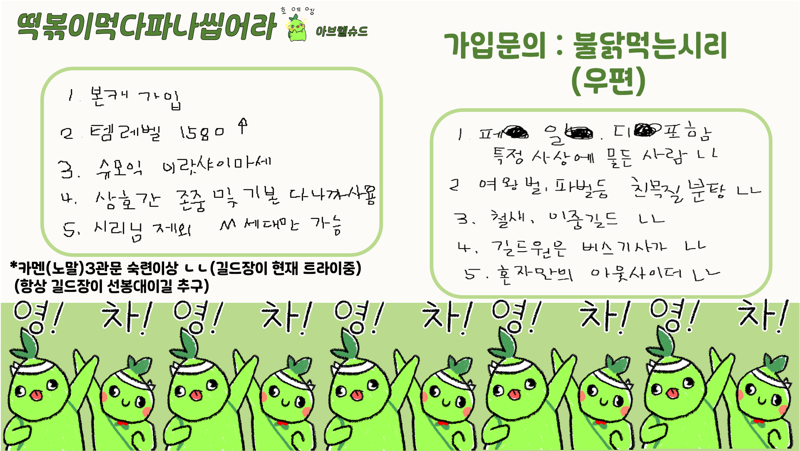 떡볶이먹다파나씹어라
호에엥
아브렐슈드
1. 본캐 가입
2. 템레벨 1580↑
3. 슈모익 이랏샤이마세
4. 상호간 존중 및 기본 다나까사용
5. 시리님 제외 M세대만 가능
*카멘(노말)3관문 숙련이상 ㄴㄴ(길드장이 현재 트라이중)
(항상 길드장이 선봉대이길 추구)
가입문의 : 불닭먹는시리
(우편)
1. 페 일 . 디 포함
특정 사상에 물든 사람 ㄴㄴ
2 여왕벌, 파벌등 친목질 분탕 ㄴㄴ
3. 철새, 이중길드 ㄴㄴ
4. 길드원은 버스기사가 ㄴㄴ
5. 혼자만의 아웃사이더 ㄴㄴ
영! 차! 영! 차! 영! 차! 영! 차! 영! 차!